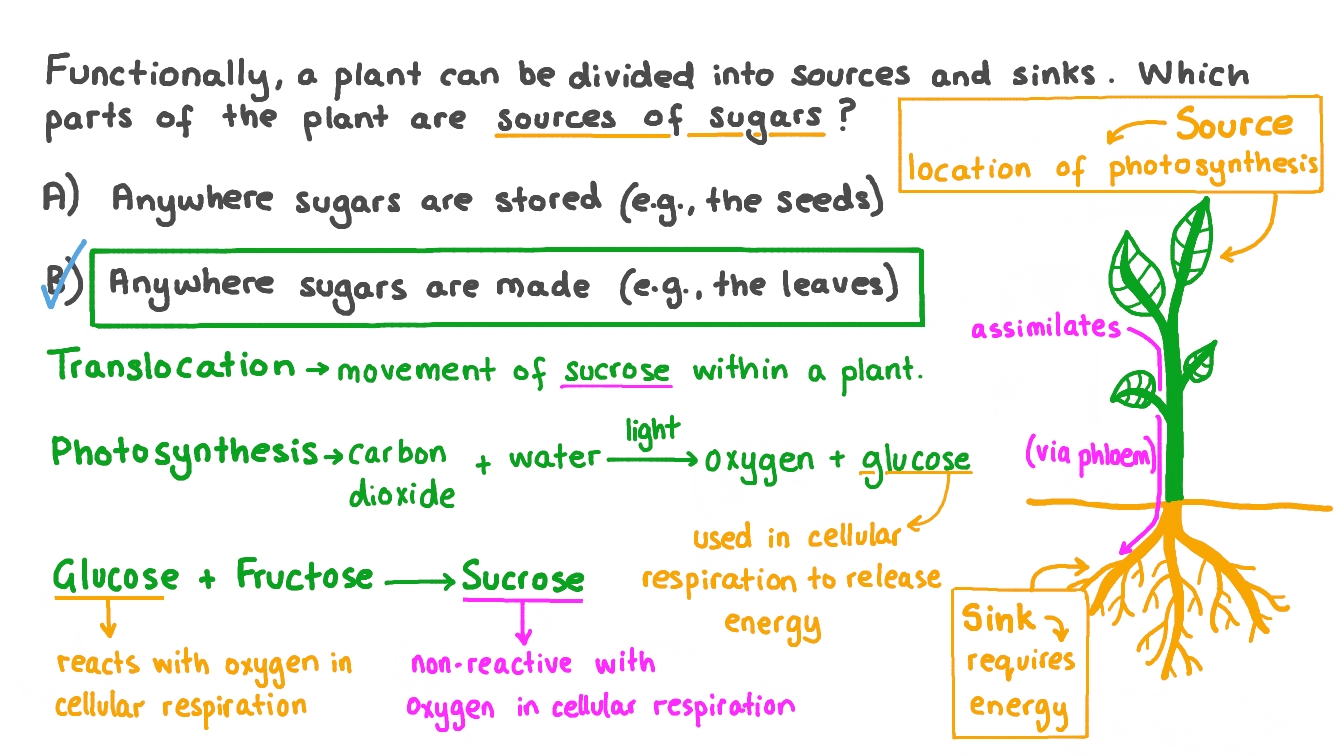 Functionally, a plant can be divided into sources and sinks. Which
parts of the plant are sources of sugars?
A) Anywhere sugars are stored (e.g., the seeds)
B) Anywhere sugars are made (e.g., the leaves)
Source
location of photosynthesis
assimilates
(via phloem)
Translocation → movement of sucrose within a plant.
light
Photosynthesis → carbon + water → oxygen + glucose
dioxide
used in cellular
respiration to release
energy
Glucose + Fructose → Sucrose
reacts with oxygen in
cellular respiration
non-reactive with
oxygen in cellular respiration
Sink
requires
energy